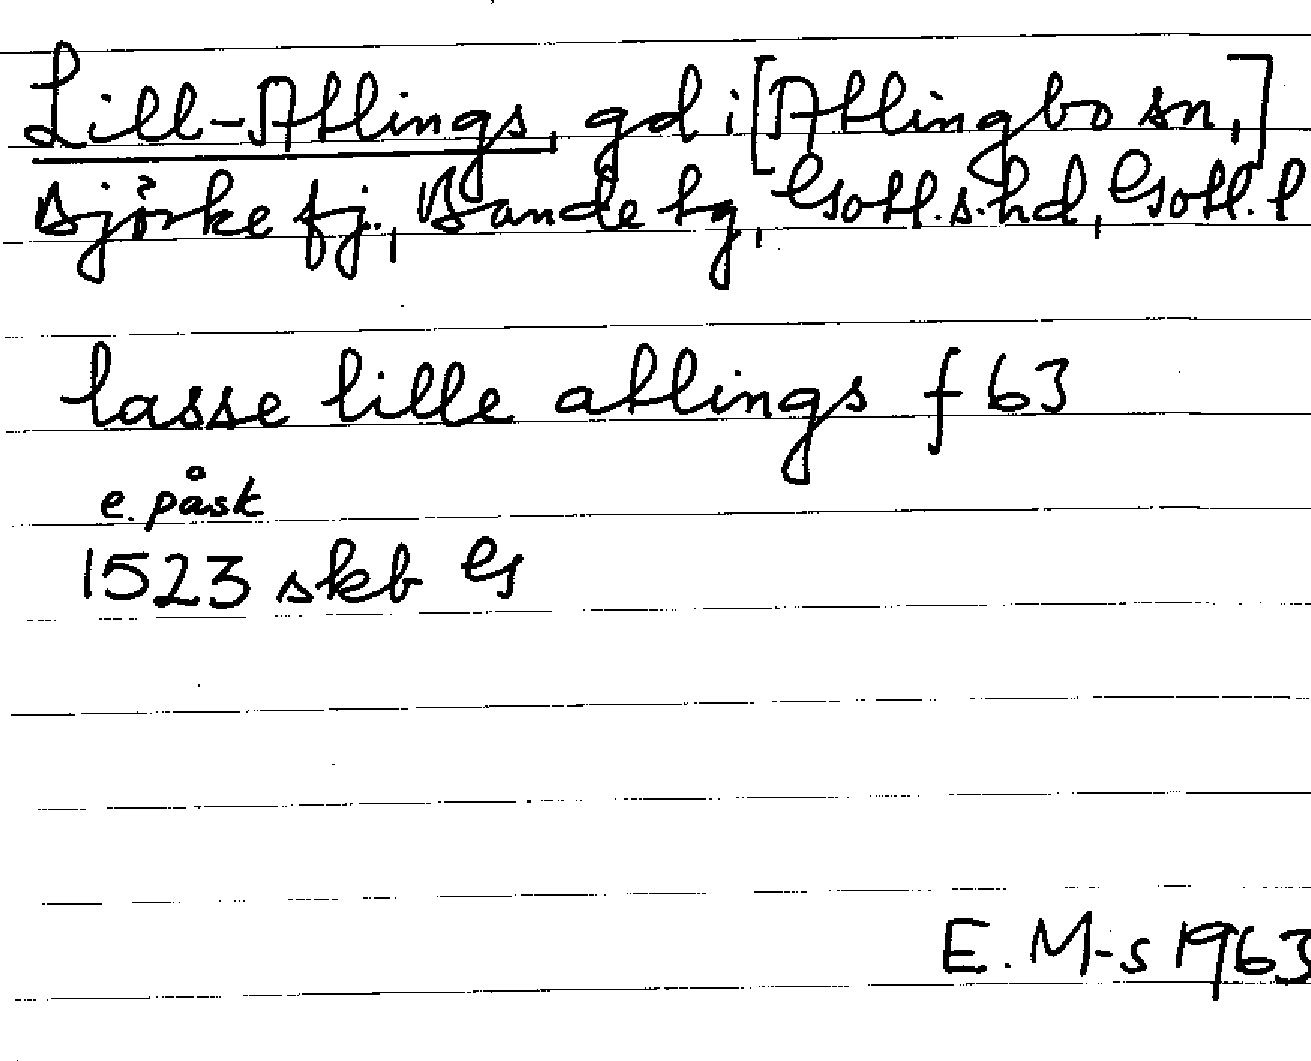 Lill-Atlings, gd i [Atlingbo sn,]
Björke fj., Bande tg, Gotl.s.hd, Gotl. l
lasse lille atlings f 63
e. påsk
1523 skb G
E. M-s 1963